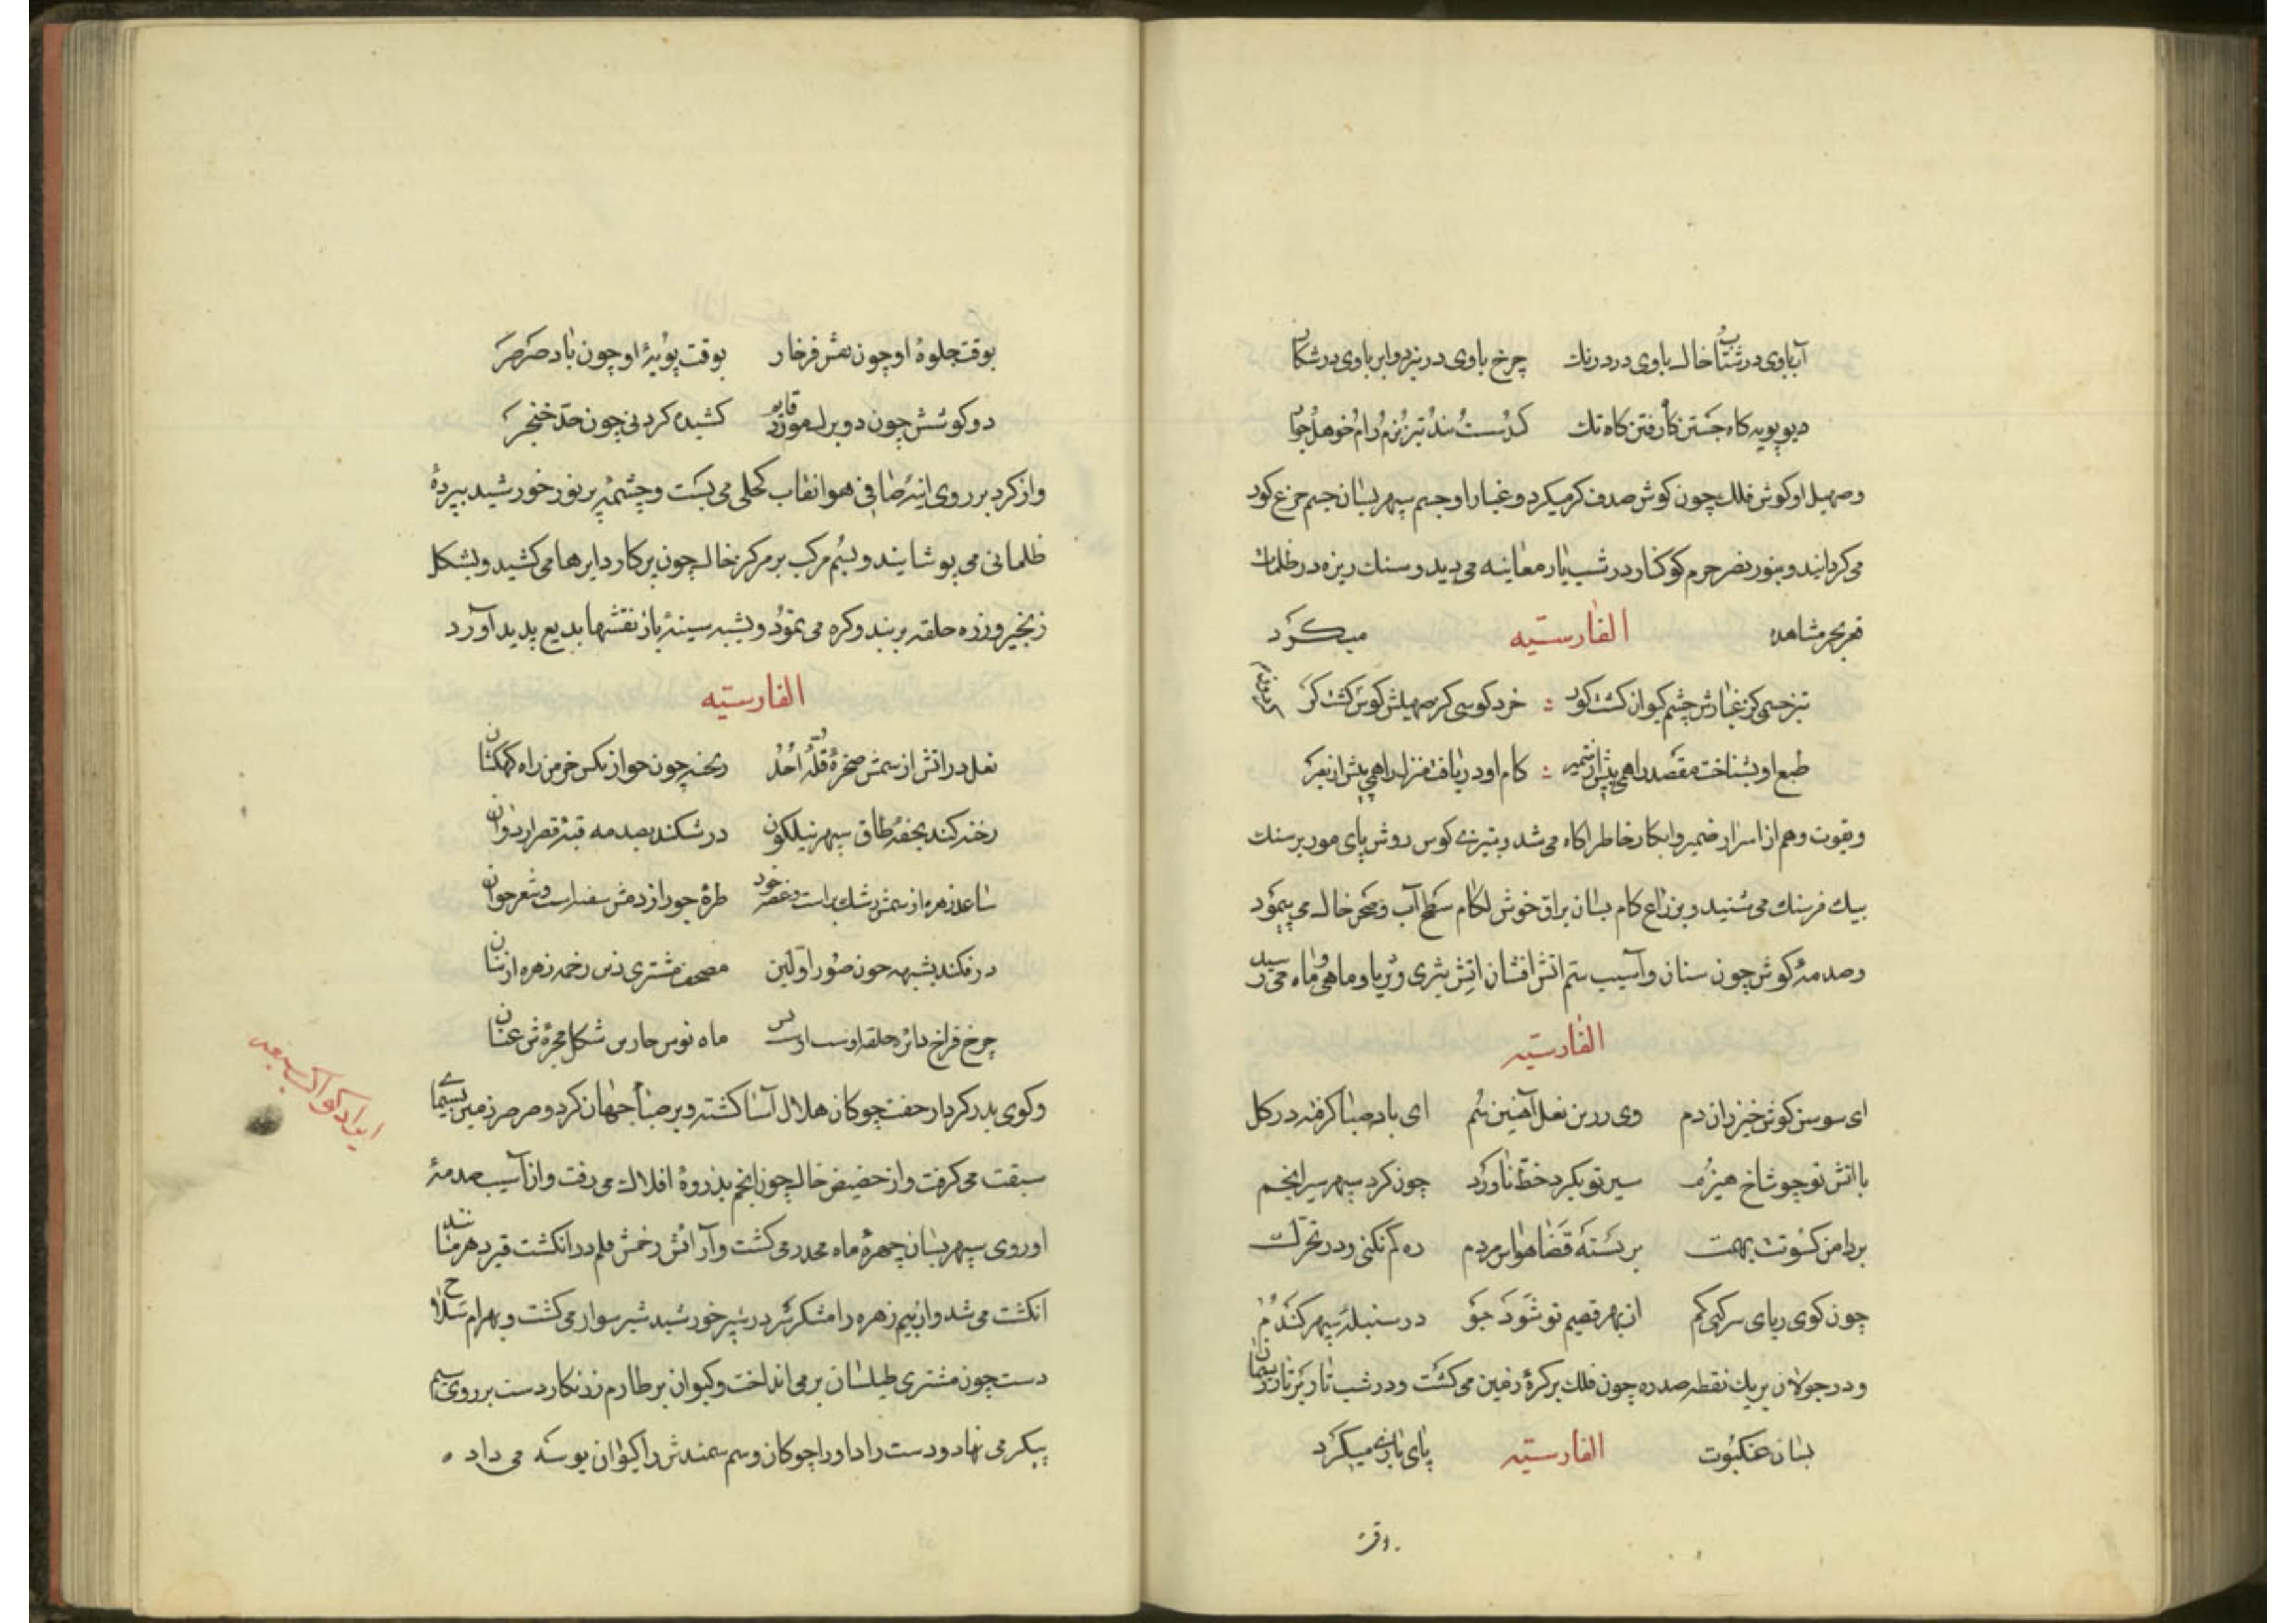 آب با وی در شتاب خاك با وی در درنك چرخ با وی در نبرد و ابر با وی در شکار
دیو پویه کاه جستن کاه رفتن کاه تك کد سست تند تیز نرم رام خوهل جوان
و صهیل او کوش فلك چون کوش صدف کر میکرد و غبار او چشم سپهر بسان چشم جزع کور
می کردانید و بنور بصر جرم کوکنار در شب تار معاینه می دید و سنك ریزه در ظلمات
قعر بحر مشاهده الفارسیه میکرد
تیز چشمی کز غبارش چشم کیوان کشت کور خرد کوشی کز صهیلش کوش کشت کر
طبع او بشناخت مقصد راهی پیش از ضمیر کام او دریافت منزل راهی پیش از نفر
و بقوت وهم از اسرار ضمیر و ابکار خاطر اکاه می شد و بتیزی کوس روش پای مور بر سنك
بیك فرسنك می شنید و بذراع کام بسان براق خوش لکام سطح آب و صحن خاك می پیمود
و صدمهٔ کوش چون سنان و آسیب ستم اتش افشان اتش بثری و ثریا و ماهی و ماه می رسید
الفارسیه
ای سوسن کوش خیزران دم وی زرین نعل آهنین سم ای باد صبا کرفته در کل
با اتش تو چو شاخ هیزم سیر تو بکرد خط ناورد چون کرد سپهر سیر انجم
بر دامن کسوتت بهمت بر بسته قضا هواس مردم ره کم نکنی و در تحرك
چون کوی ز پای سر کنی کم از بهر قضیم تو شود جو در سنبلهٔ سپهر کندم
و در جولان بر یك نقطه صد ره چون فلك بر کرهٔ زمین می کشت و در شب تار بر تار ریسمان
بسان عنکبوت الفارسیه پای بازی میکرد
وقت
بوقت جلوهٔ او چون نقش فرخار بوقت پویهٔ او چون باد صرصر
دو کوشش چون دو برك مورد کشیده کردنی چون حد خنجر
و از کرد بر روی اینهٔ صافی هوا نقاب کحلی می بست و چشمهٔ پر نور خورشید بپردهٔ
ظلمانی می پوشانید و بسم مرکب بر مرکز خاك چون پرکار دایرها می کشید و بشکل
زنجیر و زره حلقه بر بند و کره می نمود و بشبه سینهٔ باز نقشها بدیع پدید آورد
الفارسیه
نعل در اتش از سمش صخرهٔ قلهٔ احد ریخته چون جو از مکس خرمن راه کهکشان
رخنه کند بخفه طاق سپهر نیلکون در شکند بصدمه قبهٔ قصر اردوان
ساعد زهره از سمش رشك طرهٔ حور از دمش
در فکند بشبهه چون صور اولین مصحف مشتری ز بر زخمه زهره از بنان
چرخ فراخ دائره حلقه ماه نو شکل مجره ش عنان
و کوی بدر کردار جفت چوکان هلال آسا کشته و بر صبا جهان کرد و صرصر زمین بسیمای
سبقت می کرفت و از حضیض خاك چون انجم بذروهٔ افلاك می رفت و از آسیب صدمهٔ
او روی سپهر بسان چهرهٔ ماه مجدر می کشت و از اتش رخش قلم در انکشت تیر در هر مانند
انکشت می شد و از بیم زهره رامشکر در سپر خورشید شیر سوار می کشت و بهرام سلاح
دست چون مشتری طیلسان بر می انداخت و کیوان بر طارم زرنکار دست بر روی سیم
پیکر می نهاد و دست را دا و را چوکان و سم سمندش را کیوان بوسه می داد
ایراد کواکب سبعه